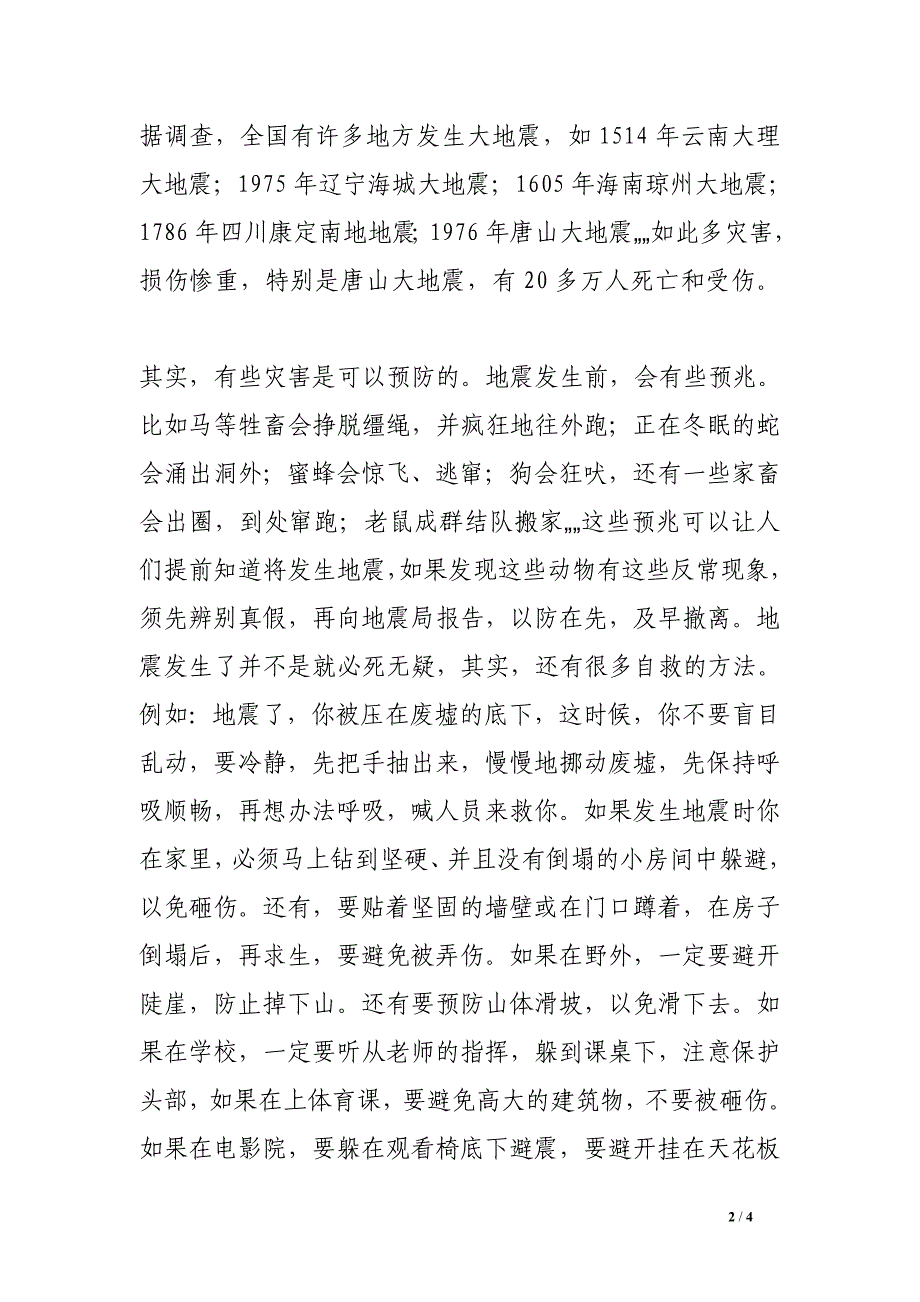 据调查，全国有许多地方发生大地震，如 1514 年云南大理
大地震；1975 年辽宁海城大地震；1605 年海南琼州大地震；
1786 年四川康定南地地震；1976 年唐山大地震„„如此多灾害，
损伤惨重，特别是唐山大地震，有 20 多万人死亡和受伤。
其实，有些灾害是可以预防的。地震发生前，会有些预兆。
比如马等牲畜会挣脱缰绳，并疯狂地往外跑；正在冬眠的蛇
会涌出洞外；蜜蜂会惊飞、逃窜；狗会狂吠，还有一些家畜
会出圈，到处窜跑；老鼠成群结队搬家„„这些预兆可以让人
们提前知道将发生地震，如果发现这些动物有这些反常现象，
须先辨别真假，再向地震局报告，以防在先，及早撤离。地
震发生了并不是就必死无疑，其实，还有很多自救的方法。
例如：地震了，你被压在废墟的底下，这时候，你不要盲目
乱动，要冷静，先把手抽出来，慢慢地挪动废墟，先保持呼
吸顺畅，再想办法呼吸，喊人员来救你。如果发生地震时你
在家里，必须马上钻到坚硬、并且没有倒塌的小房间中躲避，
以免砸伤。还有，要贴着坚固的墙壁或在门口蹲着，在房子
倒塌后，再求生，要避免被弄伤。如果在野外，一定要避开
陡崖，防止掉下山。还有要预防山体滑坡，以免滑下去。如
果在学校，一定要听从老师的指挥，躲到课桌下，注意保护
头部，如果在上体育课，要避免高大的建筑物，不要被砸伤。
如果在电影院，要躲在观看椅底下避震，要避开挂在天花板
2 / 4